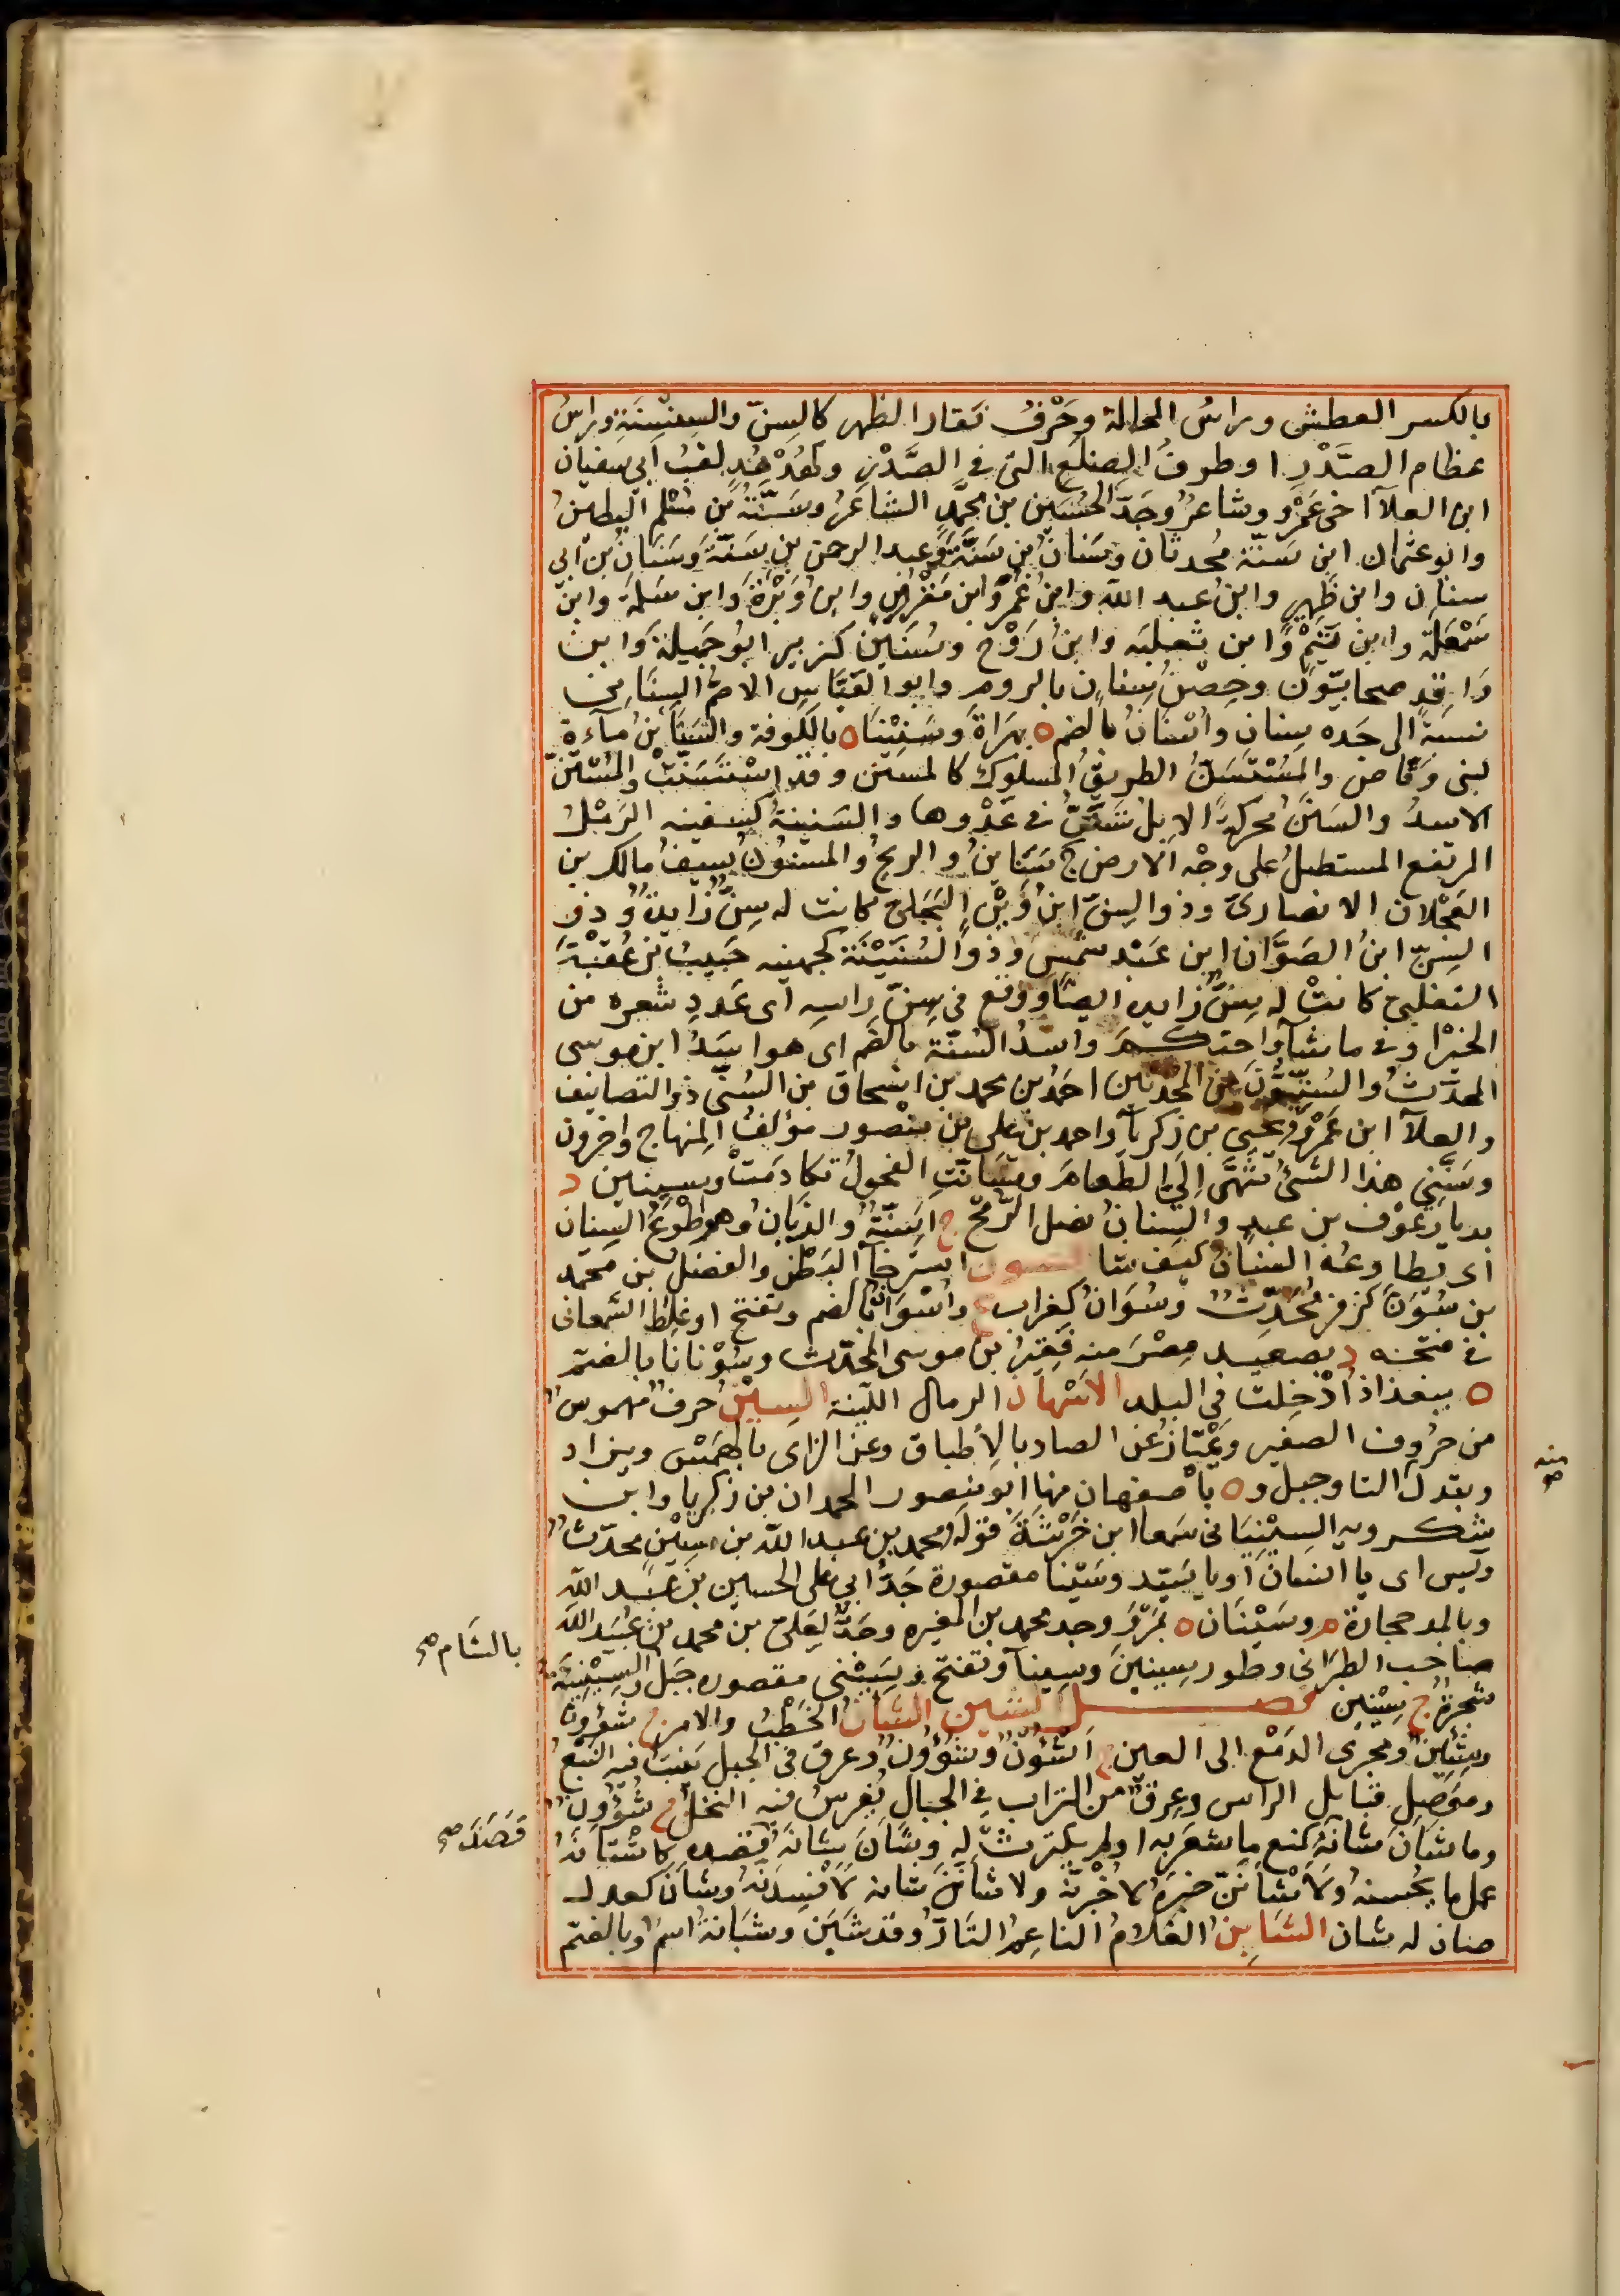 بالكسر العطش وراسُ المحالة وحَرْفُ فَقار الظهر كالسِنّ والسِنْسِنَةِ وراسُ
عظام الصَّدْرِ او طرفُ الضِلَعِ التى فى الصَّدْرِ وكهُدْهُدٍ لقبُ ابى سفيان
ابن العلآ اخى عَمْرٍو وشاعرٌ وجَدّ الحُسَين بن محمَّد الشاعرُ وسَنَّةُ بن مُسْلم البطينُ
وابو عثمان ابن سَنّة محدثان وسَنانُ بن سَنَّةَ وعبد الرحمن بن سَنّةَ وسَنَانُ بن ابى
سنان وابن ظُهيرٍ وابنُ عبد الله وابنُ عَمْرٍو وابن مُقَرِّنٍ وابنُ وَبْرَةَ وابن سَلَمَة وابن
شَمْعَلَة وابن تَيْمٍ وابن ثعلبه وابنُ رَوْح وسُنَين كزبير ابو جَميلة وابن
وَاقِدٍ صحابيّون وحِصْنُ سِنانٍ بالروم وابو العَبَّاسِ الاصَمُّ السِنَانى
نسبَة الى جَده سِنانٍ واسْنَانُ بالضم ه بهَرَاةَ وسَنِيْنَا ه بالكوفة والسَنَائنُ مآءة
لبنى وَقاص والمُسْتَسَنُّ الطريقُ المسلوك كالمسَنن وقد اسْتَسَنّتْ والمُسْتَنّ
الاسدُ والسَنَنُ محركةً الابلُ تَسْتَنُّ فى عَدْوها والسَنينةُ كسفينه الرَمْلُ
المرتفع المستطيلُ على وجْه الارض ج سَنَائنُ والريحُ والمسنونُ سيفُ مالك بن
العَجْلان الانصارىّ وذو السِنّ ابنُ وَثْنٍ البَجَلى كانت له سِنٌّ زايدةٌ وذو
السِنّ ابنُ الصَوَّان ابن عَبْد شمْسٍ وذو السُنَيْنَة كجهينه حَبيبُ بن عُقْبَةَ
التغلبى كانتْ له سِنٌّ زايده ايضًا ووقع فى سِنّ راسِه اى عَددِ شعره من
الخيْر او فى ما شآء واحتكـم واسَدُ السُنّة بالضم اى هو اسَدُ ابن موسى
المحدّثُ والسُنّيّونَ من المحدثين احمَدُ بن محمد بن اسْحاق بن السُنّى ذو التصانيف
والعلآ ابن عَمْرٍو ويحيى بن زكريآ واحمد بن على بن منْصور مؤلفُ المنهاج واخرون
وسَنَّنى هذا الشئُ شَهَّى اِلىَّ الطعامَ وتسَانّتِ الفحولُ تكادَمَتْ وسِنينن د
بديار عَوْف بن عبدٍ والسِنانُ نصل الرّمح ج اَسِنّةٌ والذِبّانُ وهو اطْوَعُ السِنان
اى يطاوعُه السِنانُ كيف شا التسون استرخآ البَطْن والفضلُ بن محمّد
بن سُوَنَ كزفر مُحَدِّثٌ وسُوَانٌ كغراب ع واُسْوَانُ بالضم وتفتح او غلِطَ السَّمعانى
فى فتحـه د بصعيـد مِصْر منه فقيرُ بن موسى المحدّث وسُوْنَانَا بالضم
ه ببغداذ اُدْخِلت فى البلد الاسْهان الرمال اللّينة السِيْنُ حرفٌ مهموسٌ
من حرُوف الصفير ويَمْتَازُ عن الصاد بالاِطباق وعن الزاى بالهَمْس ويزاد
ويبدل التا وجبل و ه باصْفهان منها ابو منصور المحمدان بن زكريا وابن
شكرويه السِيْنيّانى سَمعا ابن خَرْشَةَ قوله ومحمد بن عبد الله بن سِيْن محدّثٌ
ويس اى يا انسان او يا سَيّد وسَيّنا مقصورة جَدُّ ابى على الحسين بن عَبـد الله
وبالمد حجارة م وسَيْنَان ه بمَرْوَ وجد محمد بن المغيره وجَدٌّ لِعَلىّ بن محمد بن عُبَيد الله
صاحب الطبرانى وطور سِينينَ وسِينآ وتفتح وسَيْنى مقصوره جبل السِيْنِيَةُ
شجرةٌ ج سِيْنِين فصــل الشين الشَان الخَطْبُ والامر ج شؤُون
وشِئِينٌ ومجرى الدَمْع الى العين ج اَشْؤُنٌ وشُؤُوْنٌ وعرق فى الجبل يَنبتُ فيه النَبْعُ
ومَوْصِل قبايل الراس وعِرقٌ من التراب فى الجبال يُغرسُ فيه النخل ج شُؤُونٌ
وما شانَ شانَهُ كمنع ما شعَر به او لم يكترث له وشَانَ شانَهُ قصده كاشْتَانَهُ
عمل ما يُحْسنهُ ولَاَشْاَنَنّ خبرَهُ لاَخْبُرنّه ولاشاَنَنّ شانه لاُفْسِدَنّهُ وشَانَ كمعد لـ
صار له شان الشَابِنُ الغلامُ الناعِمُ التارّ وقد شَبَنَ وشَبَانَةُ اسمٌ وبالضم
منه صح
بالشام صح
قَصَدَ صح